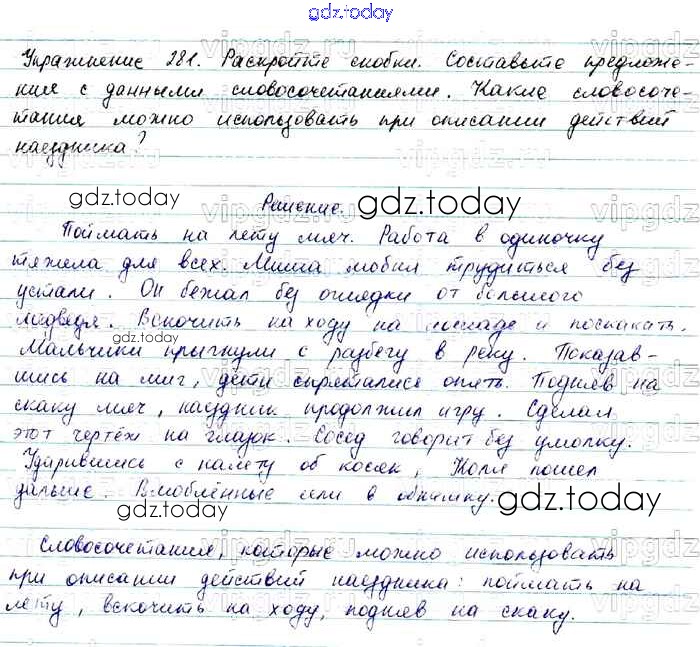 gdz.today
Упражнение 281. Раскройте скобки. Составьте предложе-
ния с данными словосочетаниями. Какие словосоче-
тания можно использовать при описании действий
наездника?
gdz.today
Решение.
gdz.today
Поймать на лету мяч. Работа в одиночку
тяжела для всех. Миша любил трудиться без
устали. Он бежал без оглядки от большого
медведя. Вскочить на ходу на лошаде и поскакать.
gdz.today
Мальчики прыгнули с разбегу в реку. Показав-
шись на миг, дети спрятались опять. Подняв на
скаку мяч, наездник продолжил игру. Сделал
этот чертёж на глазок. Сосед говорит без умолку.
Ударившись с налету об косяк, Коля пошел
дальше. Влюблённые шли в обнимку.
gdz.today
gdz.today
Словосочетания, которые можно использовать
при описании действий наездника: поймать на
лету, вскочить на ходу, подняв на скаку.